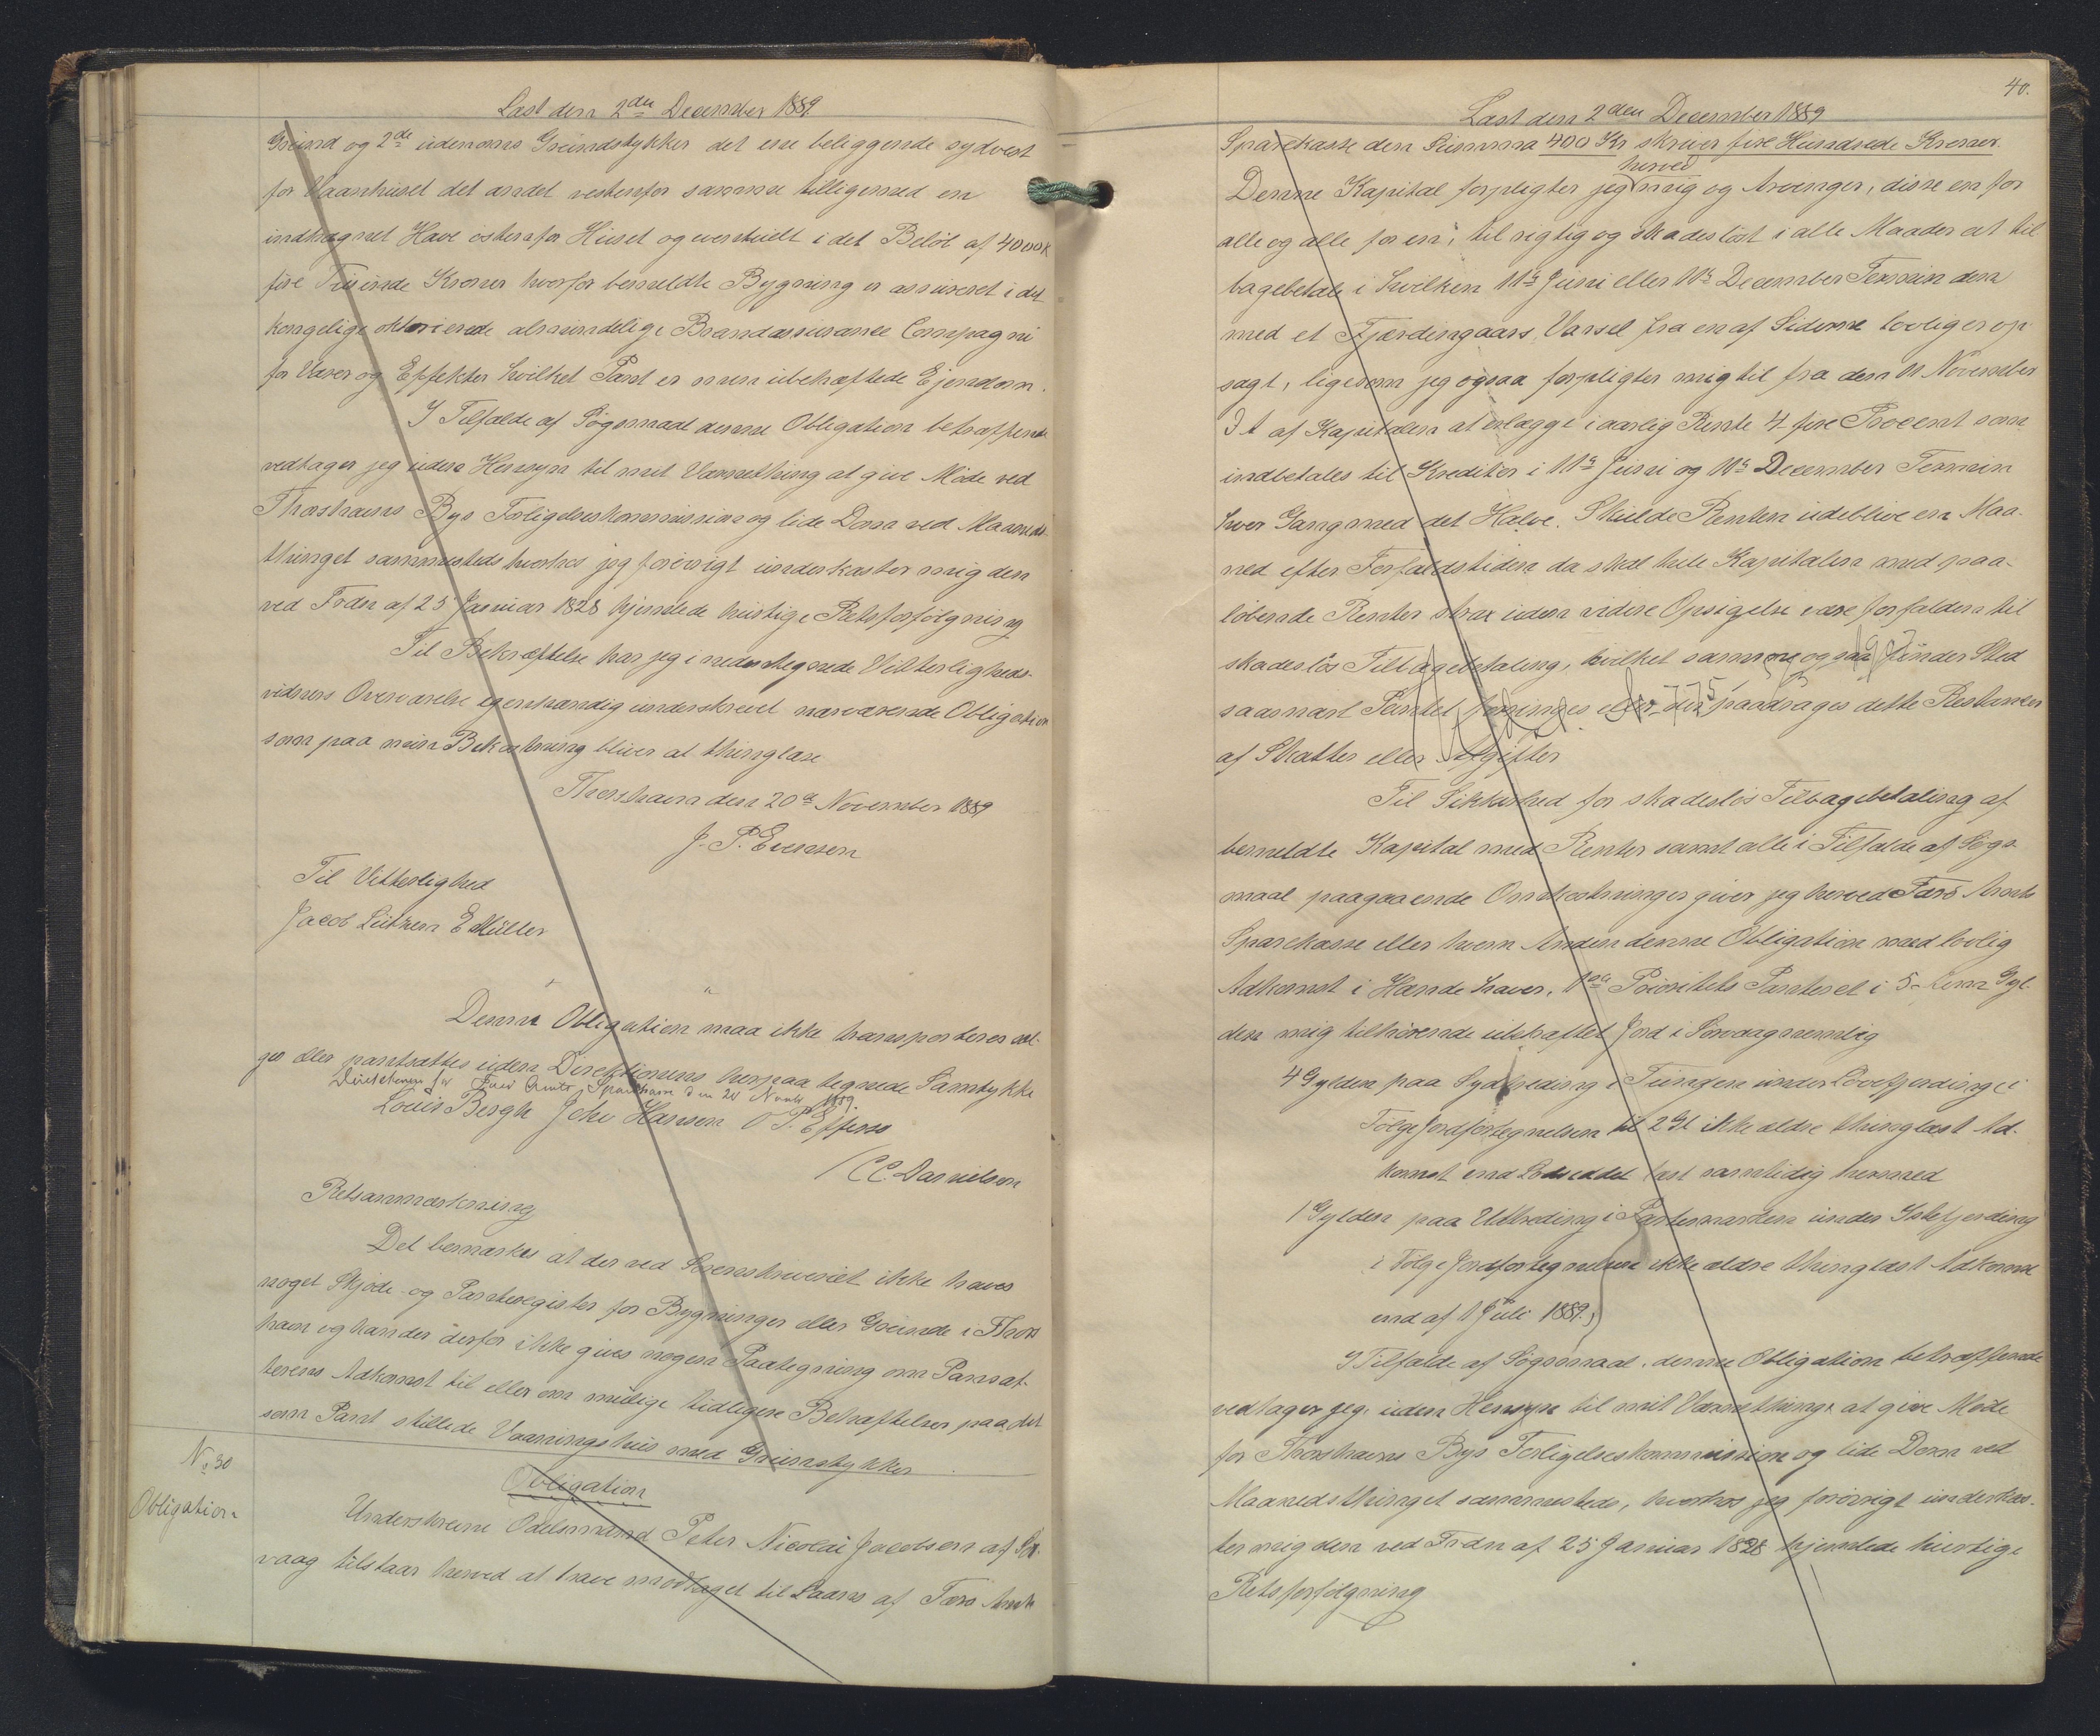 Læst den 2den December 1889.
Grund og 2de udenoms Grundstykker det ene beliggende sydvest
for Vaanhuset det andet vestenfor samme tilligemed en
indhegnet Have østenfor Huset og vurderet i det Beløb af 4000 K
fire Tusinde Kroner hvorfor bemeldte Bygning er assureret i det
kongelige oktroierede almindelige Brandassurance Compagni
for Varer og Effekter hvilket Pant er min ubehæftede Ejendom.
I Tilfælde af Søgsmaal denne Obligation betræffende
vedtager jeg uden Hensyn til mit Værnething at give Møde ved
Thorshavns Byes Forligelseskommission og lide Dom ved Maaneds-
thinget sammesteds hvorhos jeg forøvrigt underkaster mig den
ved Frdn af 25 Januar 1828 hjemlede hurtige Retsforfølgning
Til Bekræftelse har jeg i nedentegnede Vitterligheds-
vidners Overværelse egenhændig underskrevet nærværende Obligation
som paa min Bekostning bliver at thinglæse
Thorshavn den 20de November 1889
J. P. Evensen
Til Vitterlighed
Jacob Lützen E Müller
Denne Obligation maa ikke transporteres sæl-
ges eller pantsættes uden Direktionens herpaa tegnede Samtykke
Direktionen for Færø Amts Sparekasse den 20 Novbr 1889.
Louis Bergh Joh. Hansen O P. Effersø
/ C C. Danielsen
Retsanmærkning
Det bemærkes at der ved Sorenskriveriet ikke haves
noget Skjøde- og Panteregister for Bygninger eller Grunde i Thors
havn og kan der derfor ikke gives nogen Paategning om Pantsæt-
terens Adkomst til eller om mulige tidligere Behæftelser paa det
som Pant stillede Vaaningshus med Grundstykker
No 30
Obligation
Obligation
Underskrevne Odelsmand Peter Nicolai Jacobsen af Sør-
vaag tilstaar herved at have modtaget til Laans af Færø Amts
40.
Læst den 2den December 1889
Sparekasse den Summa 400 Kr skriver fire Hundrede Kroner.
herved
Denne Kapital forpligter jeg mig og Arvinger, disse en for
alle og alle for en, til rigtig og skadesløst i alle Maader at til
bagebetale i hvilken 11te Juni eller 11te December Termin den
med et Fjerdingaars Varsel fra en af Siderne lovlig er op-
sagt, ligesom jeg ogsaa forpligter mig til fra den 11 November
d A af Kapitalen at erlægge i aarlig Rente 4 fire Procent som
indbetales til Kreditor i 11te Juni og 11te December Termin
hver Gang med det Halve. Skulde Renten udeblive en Maa-
ned efter Forfaldstiden da skal hele Kapitalen med paa-
løbende Renter strax uden videre Opsigelse være forfalden til
skadesløs Tilbagebetaling, hvilket samme ogsaa finder Sted
saasnart Pantet forringes eller der paadrages dette Restancer
af Skatter eller Afgifter
Til Sikkerhed for skadesløs Tilbagebetaling af
bemeldte Kapital med Renter samt alle i Tilfælde af Søgs-
maal paagaaende Omkostninger giver jeg herved Færø Amts
Sparekasse eller hvem Anden denne Obligation med lovlig
Adkomst i Hænde haver, 1ste Prioritets Panteret i 5 fem Gyl-
den mig tilhørende ubehæftet Jord i Sørvaag nemlig
4 Gylden paa Sydtreding i Tungen under Løvefjerding i
Følge Jordfortegnelsen til 2 Gl ikke ældre thinglæst Ad-
komst end Lodseddel læst samtidig hermed
1 Gylden paa Udtreding i under fjerding
i Følge Jordfortegnelsen ikke ældre thinglæst Adkomst
end af 1 Juli 1889.
I Tilfælde af Søgsmaal denne Obligation betræffende
vedtager jeg uden Hensyn til mit Værnething at give Møde
for Thorshavns Byes Forligelseskommission og lide Dom ved
Maanedsthinget sammesteds, hvorhos jeg forøvrigt underkas-
ter mig den ved Frdn af 25 Januar 1828 hjemlede hurtige
Retsforfølgning